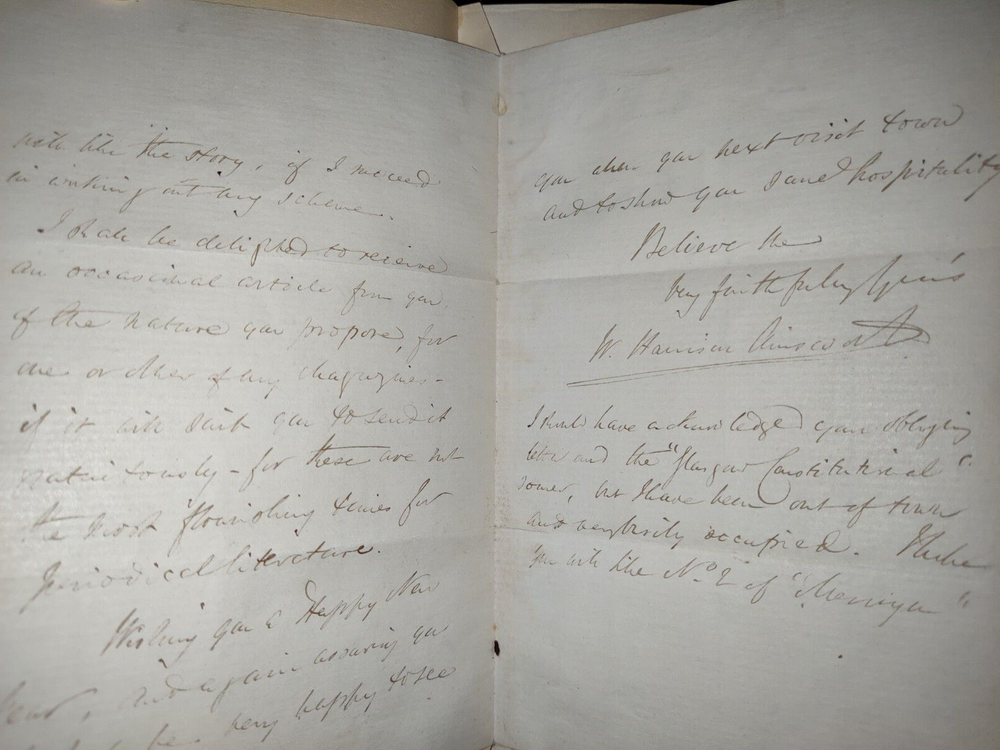 will like the story, if I succeed
in working out my scheme.
I shall be delighted to receive
an occasional article from you
of the nature you propose, for
one or other of my Magazines -
if it will suit you to send it
gratuitously - for these are not
the most flourishing times for
periodical literature.
Wishing you a Happy New
Year, and again assuring you
be very happy to see
you when you next visit town
and to show you some hospitality
Believe me
Very faithfully Yours
W. Harrison Ainsworth
I should have acknowledged your obliging
letter and the "Glasgow Constitutional"
sooner, but I have been out of town
and very busily occupied. I hope
you will like No. 2 of "Mervyn"